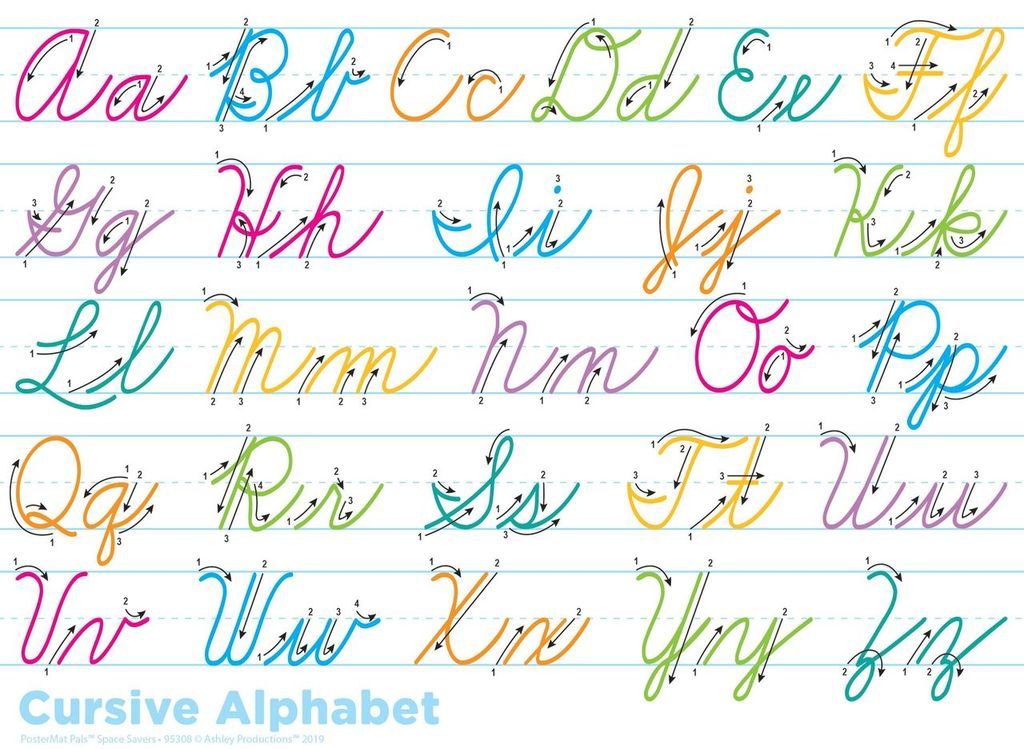 Aa Bb Cc Dd Ee Ff
Gg Hh Ii Jj Kk
Ll Mm Nn Oo Pp
Qq Rr Ss Tt Uu
Vv Ww Xx Yy Zz
Cursive Alphabet
PosterMat Pals™ Space Savers • 95308 © Ashley Productions™ 2019